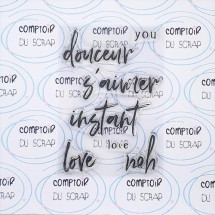 COMPTOIR
DU SCRAP
COMPTOIR
DU SCRAP
you
douceur
s'aimer
COMPTOIR
DU SCRAP
COMPTOIR
DU SCRAP
instant
love
COMPTOIR
DU SCRAP
love
COMPTOIR
DU SCRAP